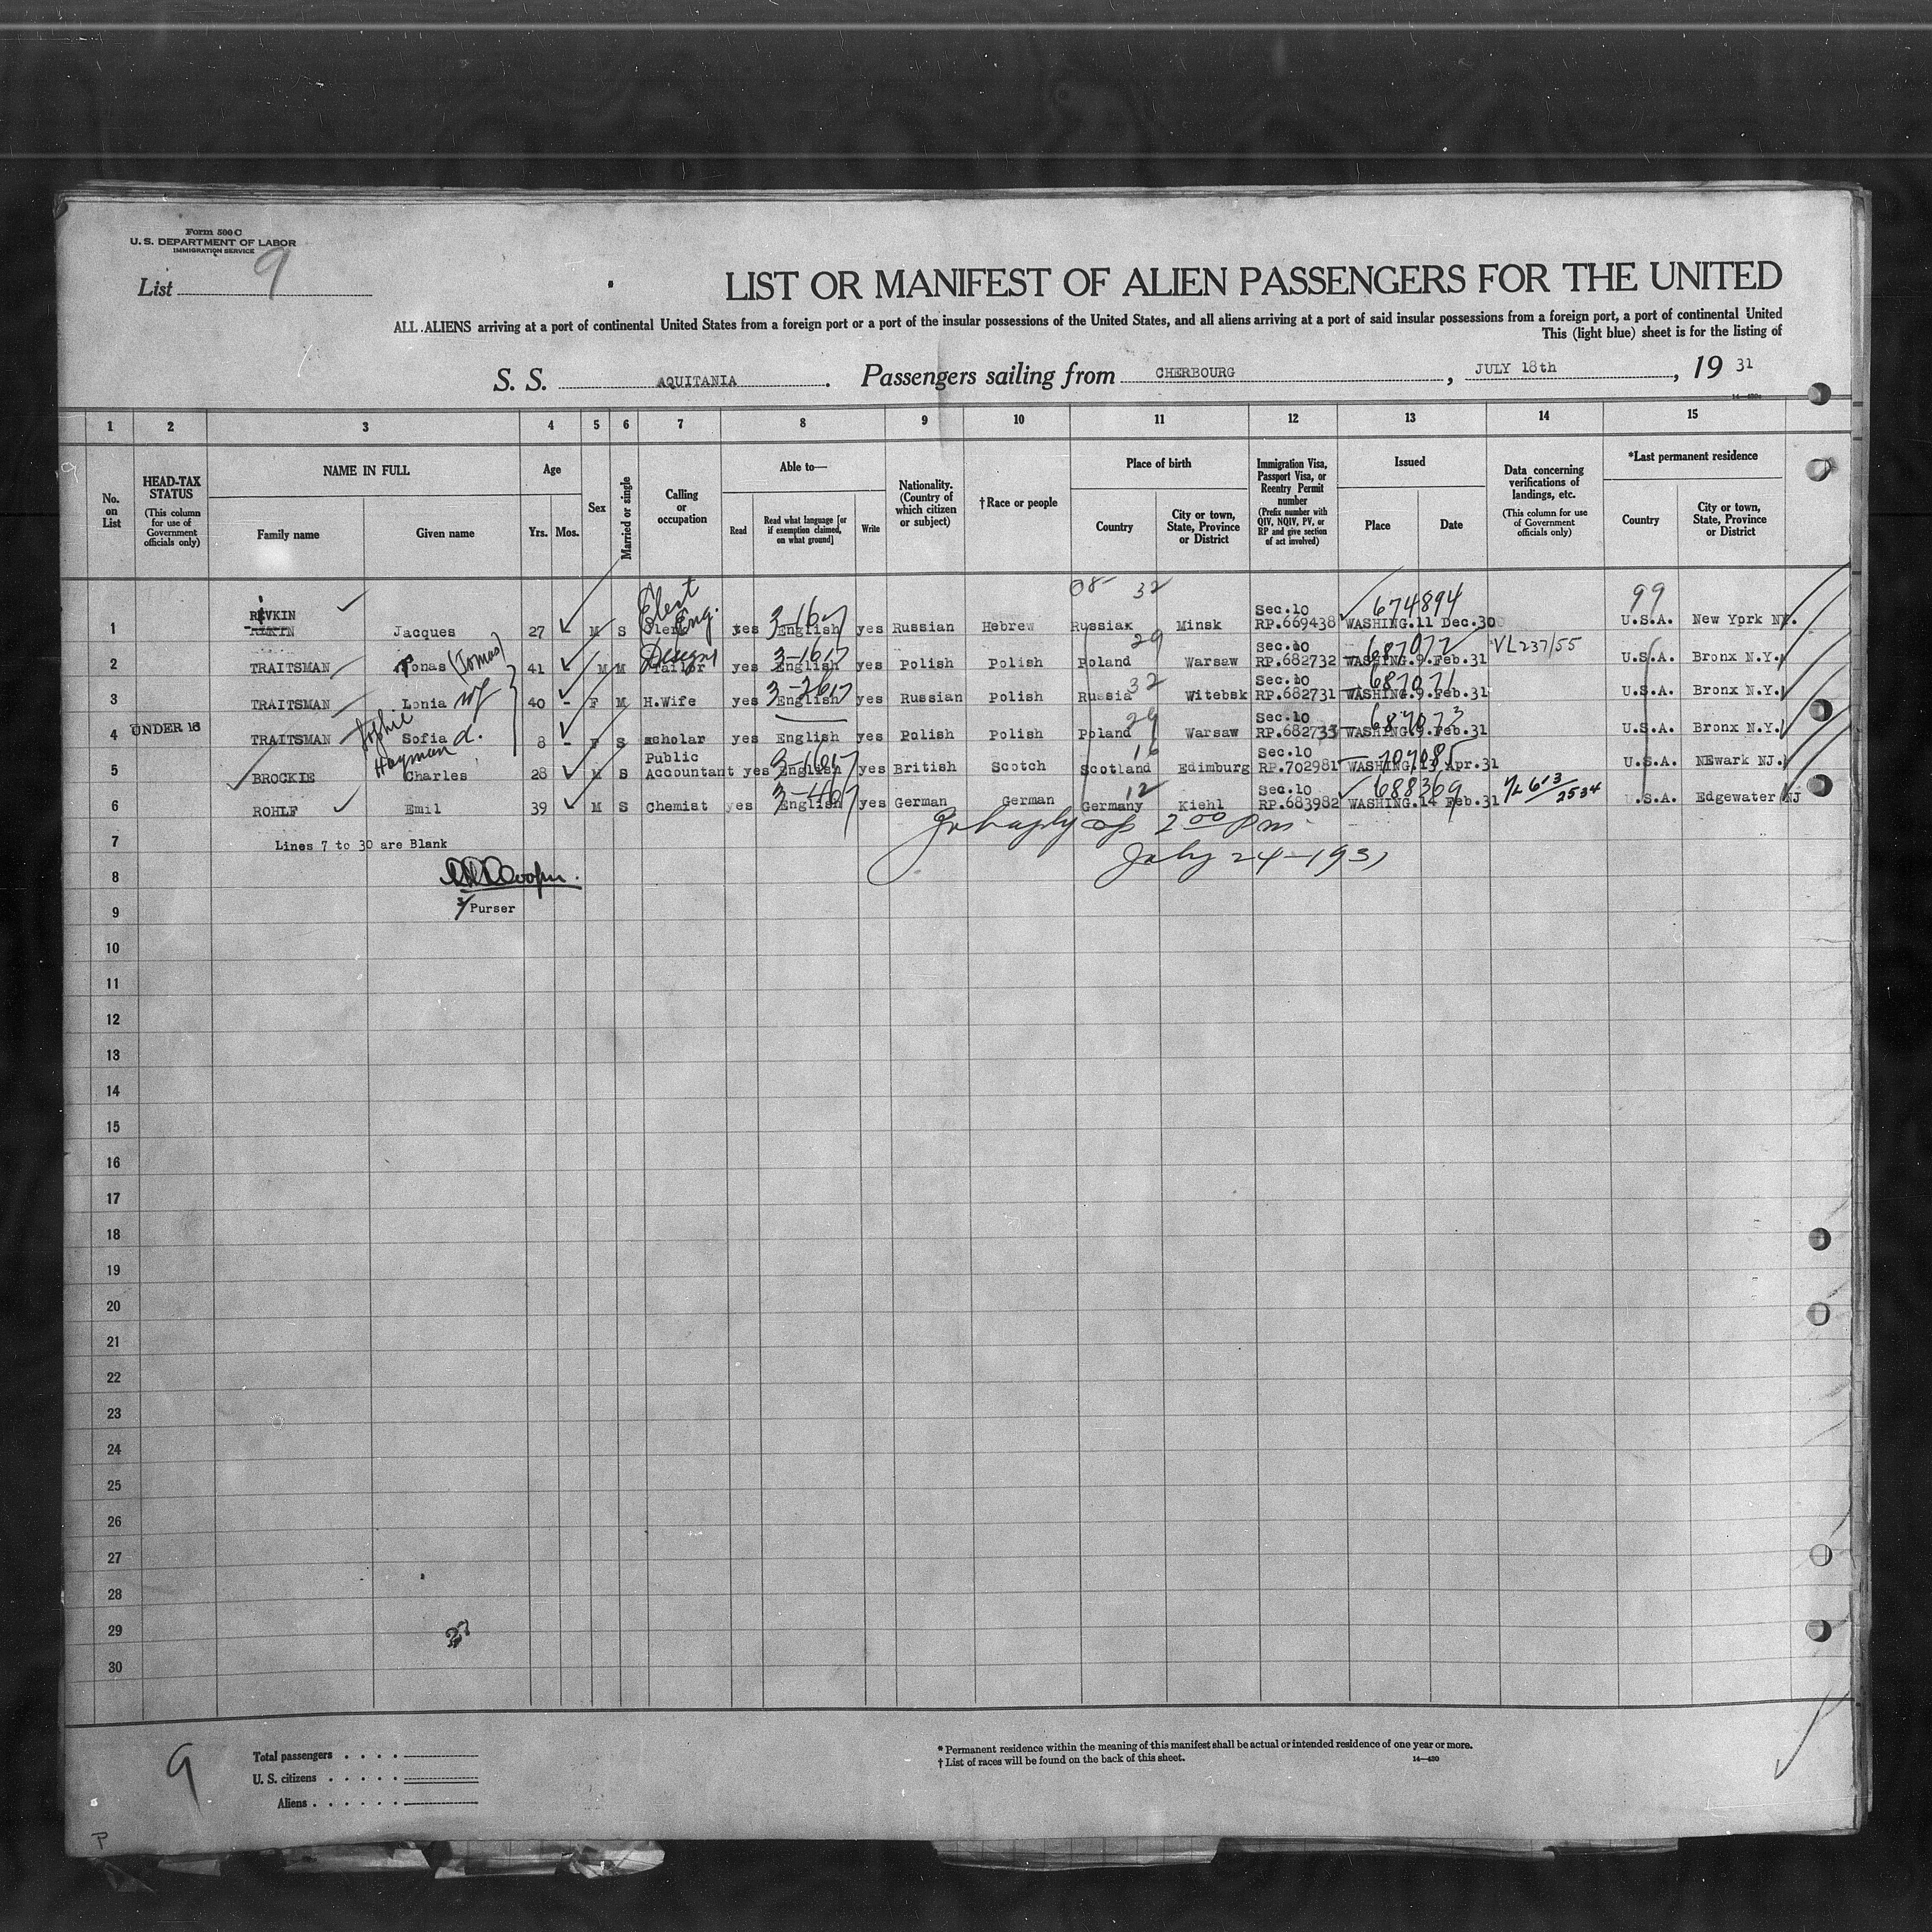 Form 500 C
U. S. DEPARTMENT OF LABOR
IMMIGRATION SERVICE
List 9
LIST OR MANIFEST OF ALIEN PASSENGERS FOR THE UNITED
ALL ALIENS arriving at a port of continental United States from a foreign port or a port of the insular possessions of the United States, and all aliens arriving at a port of said insular possessions from a foreign port, a port of continental United
This (light blue) sheet is for the listing of
S. S. AQUITANIA. Passengers sailing from CHERBOURG, JULY 18th, 19 31
14—430
1 2 3 4 5 6 7 8 9 10 11 12 13 14 15
No. on List
HEAD-TAX STATUS
(This column for use of Government officials only)
NAME IN FULL
Family name
Given name
Age
Yrs. Mos.
Sex
Married or single
Calling or occupation
Able to—
Read
Read what language [or if exemption claimed, on what ground]
Write
Nationality. (Country of which citizen or subject)
† Race or people
Place of birth
Country
City or town, State, Province or District
Immigration Visa, Passport Visa, or Reentry Permit number
(Prefix number with QIV, NQIV, PV, or RP and give section of act involved)
Issued
Place
Date
Data concerning verifications of landings, etc.
(This column for use of Government officials only)
*Last permanent residence
Country
City or town, State, Province or District
08- 32 99
RIVKIN Elect Eng. 3-1607 Sec.10 674894
1 Jacques 27 M S Clerk yes English yes Russian Hebrew Russia Minsk RP.669438 WASHING. 11 Dec.30 U.S.A. New York NY.
(Tomas) 3-1617 29 Sec.10 687072 VL237/55
2 TRAITSMAN Tonas 41 M M Tailor yes English yes Polish Polish Poland Warsaw RP.682732 WASHING. 9.Feb.31 U.S.A. Bronx N.Y.
3-2617 32 Sec.10 687071
3 TRAITSMAN Lonia wf 40 - F M H.Wife yes English yes Russian Polish Russia Witebsk RP.682731 WASHING. 9.Feb.31 U.S.A. Bronx N.Y.
UNDER 16 Sophie 29 Sec.10 687073
4 TRAITSMAN Sofia d. 8 - F S scholar yes English yes Polish Polish Poland Warsaw RP.682733 WASHING. 9.Feb.31 U.S.A. Bronx N.Y.
Hayman Public 16 Sec.10 707085
5 BROCKIE Charles 28 M S Accountant yes English yes British Scotch Scotland Edimburg RP.702981 WASHING. 13 Apr.31 U.S.A. NEwark NJ.
3-407 12 Sec.10 688369 VL 613/2534
6 ROHLF Emil 39 M S Chemist yes English yes German German Germany Kiehl RP.683982 WASHING. 14 Feb.31 U.S.A. Edgewater NJ
2 00 pm
7 Lines 7 to 30 are Blank
July 24-1931
8
Purser
9
10
11
12
13
14
15
16
17
18
19
20
21
22
23
24
25
26
27
28
29
30
9
Total passengers
U. S. citizens
Aliens
* Permanent residence within the meaning of this manifest shall be actual or intended residence of one year or more.
† List of races will be found on the back of this sheet. 14—430
P